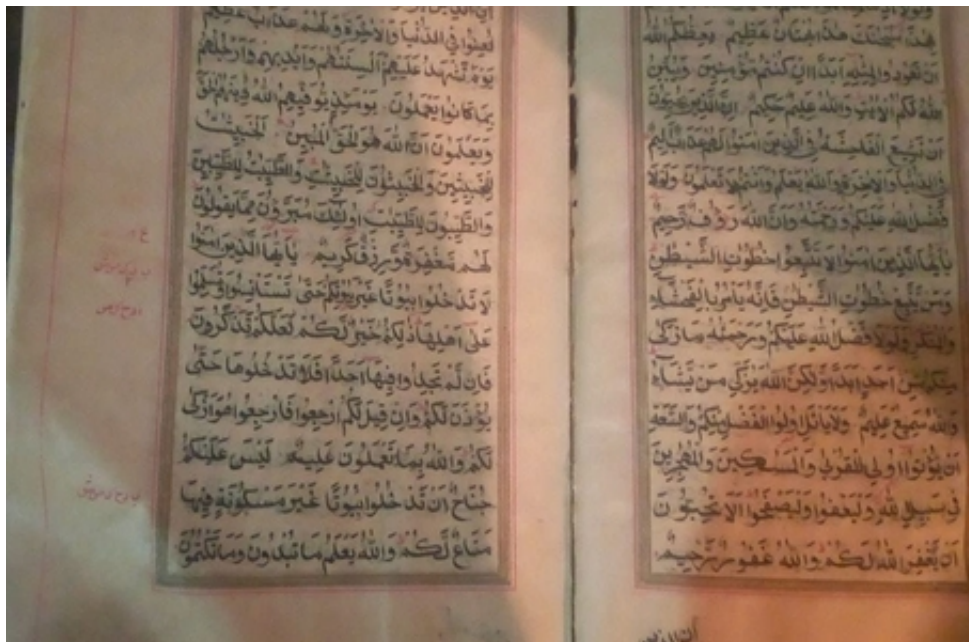 هذا سبحنك هذا بهتان عظيم يعظكم الله
ان تعودوا لمثله ابدا ان كنتم مؤمنين ويبين
الله لكم الايت والله عليم حكيم ان الذين يحبون
ان تشيع الفاحشة في الذين امنوا لهم عذاب اليم
في الدنيا والاخرة والله يعلم وانتم لا تعلمون ولولا
فضل الله عليكم ورحمته وان الله رؤف رحيم
يايها الذين امنوا لا تتبعوا خطوت الشيطن
ومن يتبع خطوت الشيطن فانه يامر بالفحشاء
والمنكر ولولا فضل الله عليكم ورحمته ما زكى
منكم من احد ابدا ولكن الله يزكي من يشاء
والله سميع عليم ولا ياتل اولوا الفضل منكم والسعة
ان يؤتوا اولي القربى والمسكين والمهجرين
في سبيل الله وليعفوا وليصفحوا الا تحبون
ان يغفر الله لكم والله غفور رحيم
ان الذين
لعنوا في الدنيا والاخرة ولهم عذاب عظيم
يوم تشهد عليهم السنتهم وايديهم وارجلهم
بما كانوا يعملون يومئذ يوفيهم الله دينهم الحق
ويعلمون ان الله هو الحق المبين الخبيثت
للخبيثين والخبيثون للخبيثت والطيبت للطيبين
والطيبون للطيبت اولئك مبرؤن مما يقولون
لهم مغفرة ورزق كريم يايها الذين امنوا
لا تدخلوا بيوتا غير بيوتكم حتى تستانسوا وتسلموا
على اهلها ذلكم خير لكم لعلكم تذكرون
فان لم تجدوا فيها احدا فلا تدخلوها حتى
يؤذن لكم وان قيل لكم ارجعوا فارجعوا هو ازكى
لكم والله بما تعملون عليم ليس عليكم
جناح ان تدخلوا بيوتا غير مسكونة فيها
متاع لكم والله يعلم ما تبدون وما تكتمون